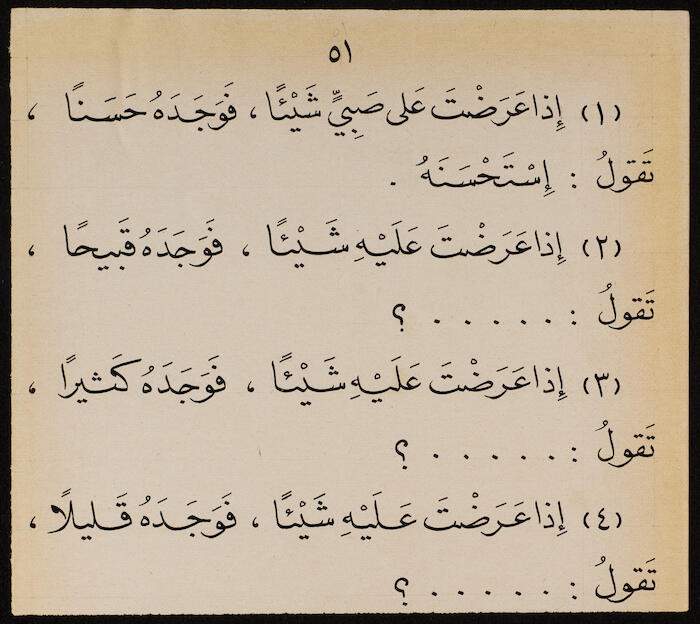 ٥١
(١) إِذا عَرَضْتَ عَلى صَبِيٍّ شَيْئًا ، فَوَجَدَهُ حَسَنًا ،
تَقولُ : إِسْتَحْسَنَهُ .
(٢) إِذا عَرَضْتَ عَلَيْهِ شَيْئًا ، فَوَجَدَهُ قَبيحًا ،
تَقولُ : . . . . . . ؟
(٣) إِذا عَرَضْتَ عَلَيْهِ شَيْئًا ، فَوَجَدَهُ كَثيرًا ،
تَقولُ : . . . . . . ؟
(٤) إِذا عَرَضْتَ عَلَيْهِ شَيْئًا ، فَوَجَدَهُ قَليلًا ،
تَقولُ : . . . . . . ؟